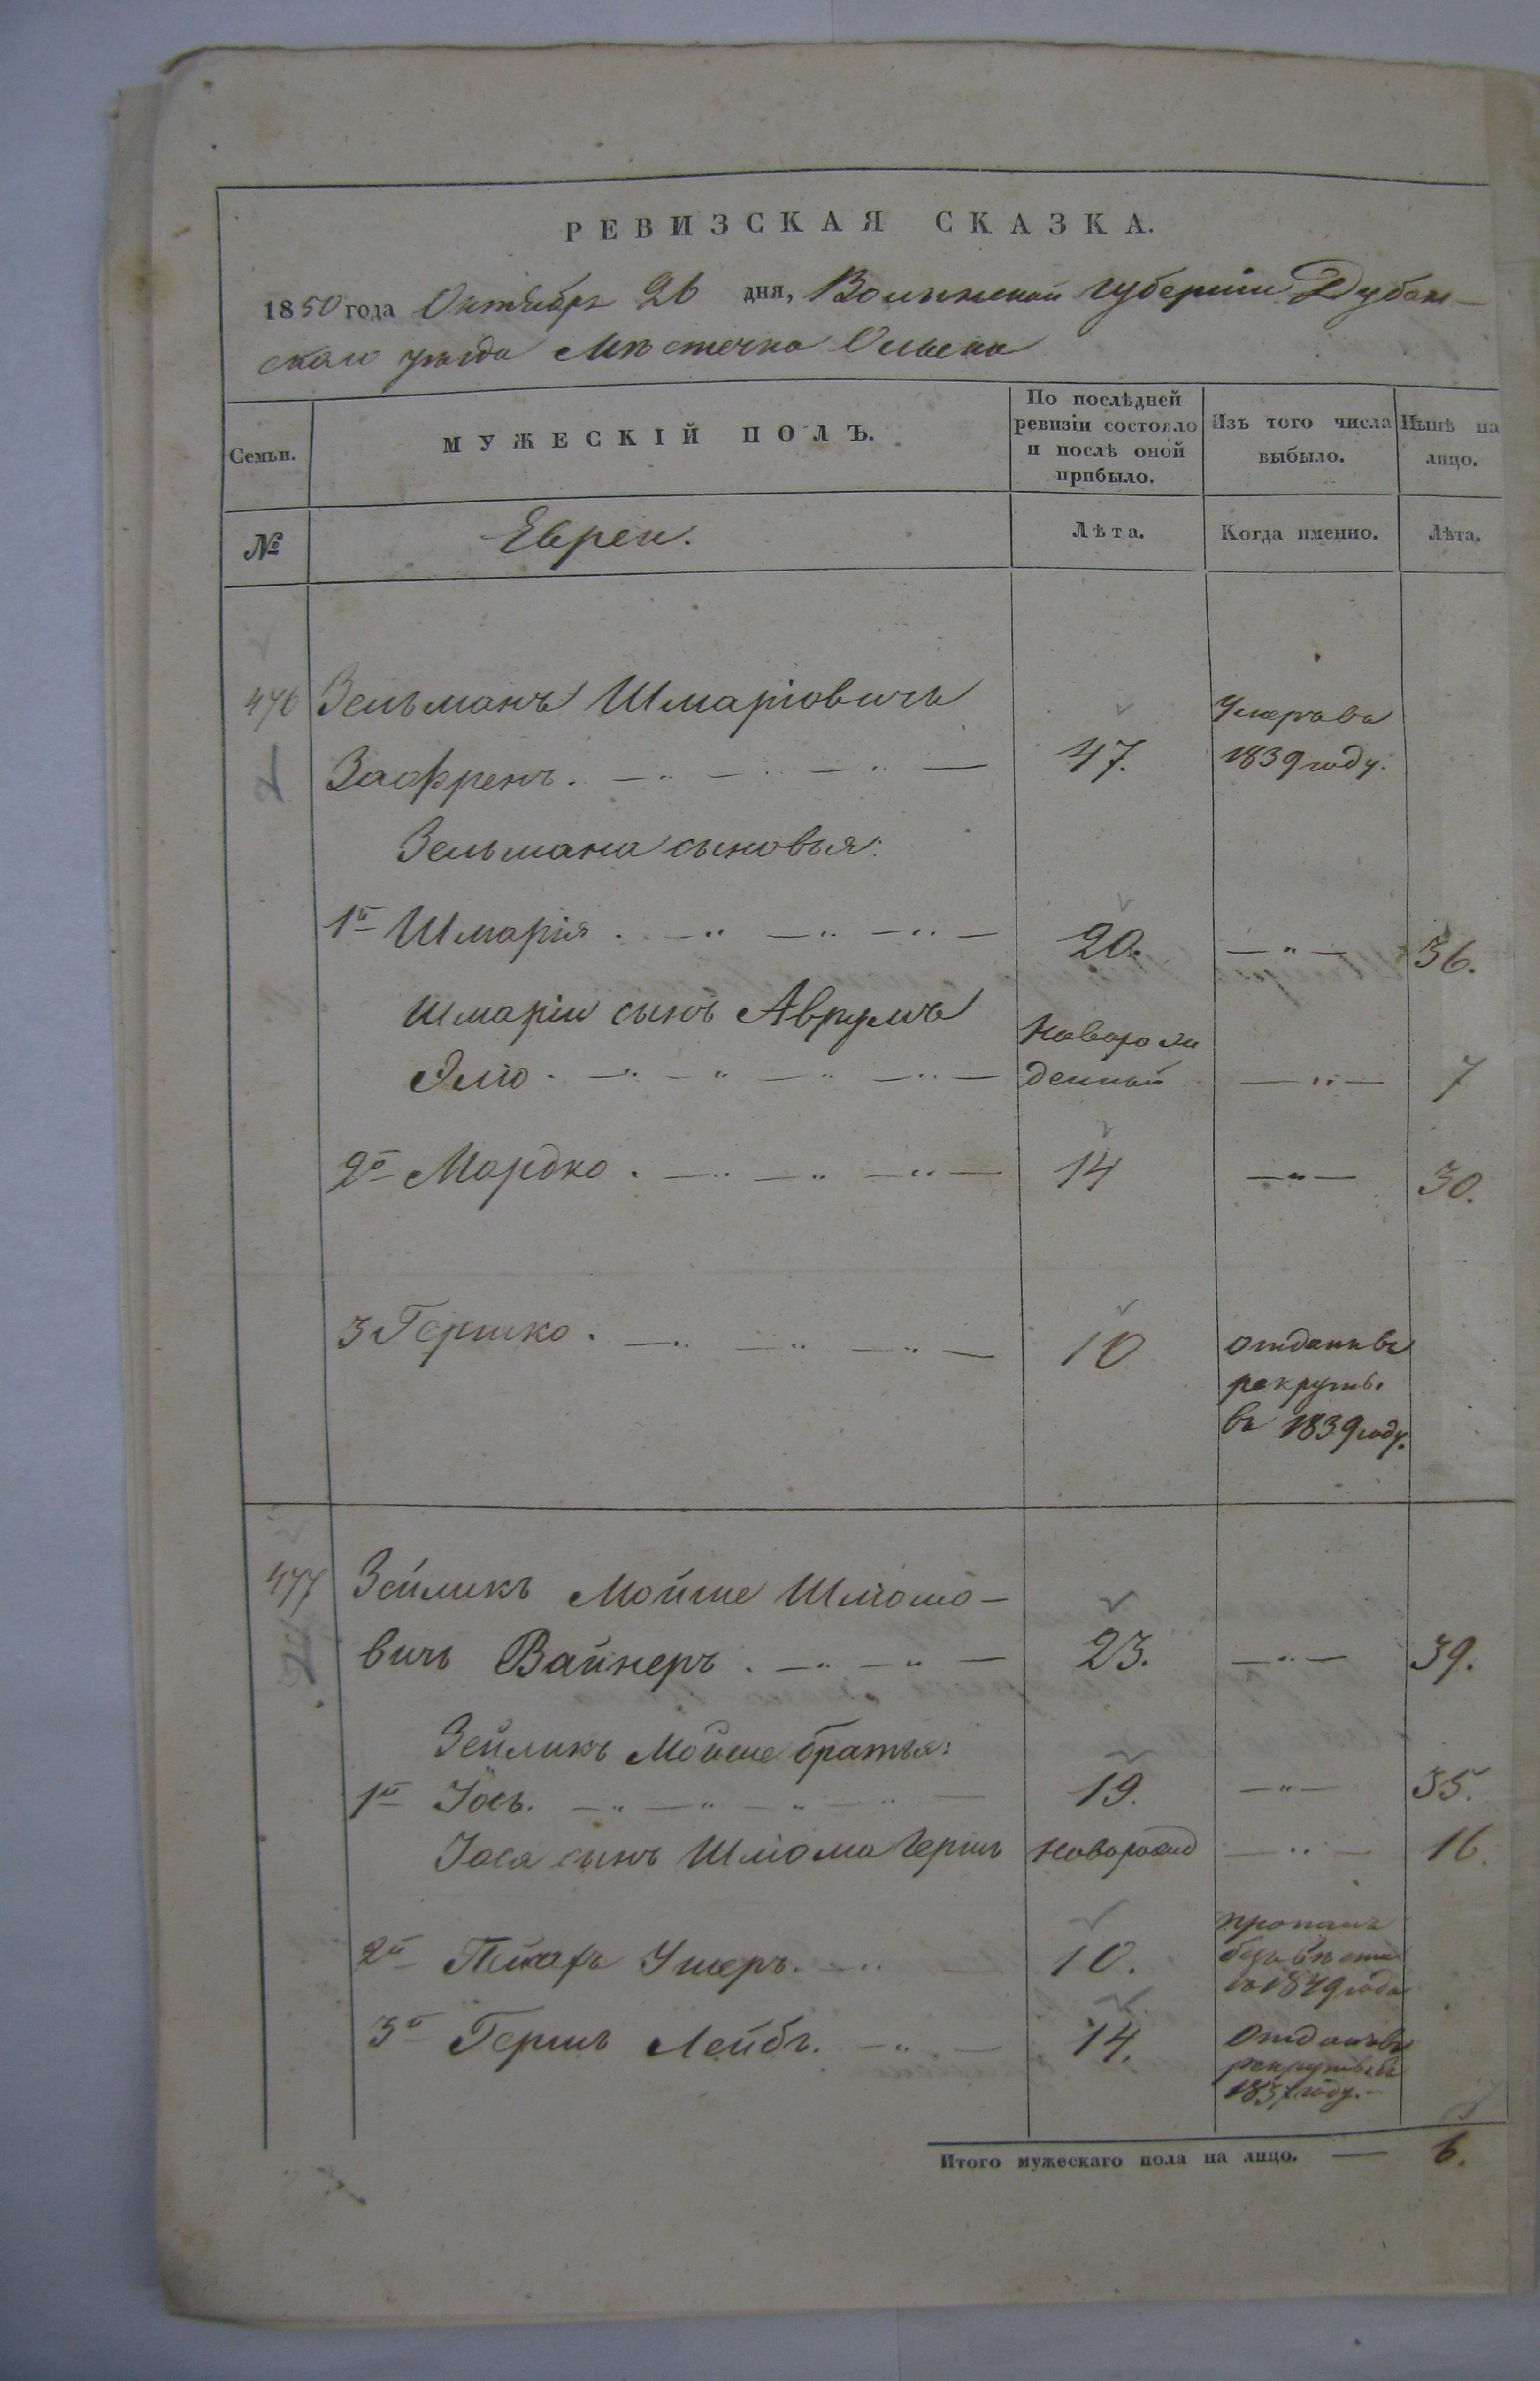 РЕВИЗСКАЯ СКАЗКА.
1850 года Октября 26 дня, Волынской губерніи Дубен-
скаго уѣзда Мѣстечка
Семьи.
МУЖЕСКІЙ ПОЛЪ.
По послѣдней ревизіи состояло и послѣ оной прибыло.
Изъ того числа выбыло.
Нынѣ на лицо.
№
Евреи.
Лѣта.
Когда именно.
Лѣта.
476 Зельманъ Шмаріовичъ Умеръ въ
Зафренъ. 47. 1839 году.
Зельмана сыновья:
1й Шмарія. 20. 36.
Шмаріи сынъ Аврумъ Новорож
Элю. денный 7
2й Мордко. 14 30.
3 Гершко. 10 отданъ въ
рекруты.
въ 1839 году.
477 Зейликъ Мойше Шліомо-
вичъ Вайнеръ. 23. 39.
Зейликъ Мойше братья:
1й Іось. 19. 35.
Іося сынъ Шліома Гершъ Новорожд 16.
2й Ушеръ. 10. пропалъ
безъ вѣсти
1849 года
3й Гершъ Лейбъ. 14. Отданъ въ
рекруты въ
1837 году.
Итого мужескаго пола на лицо. — 6.